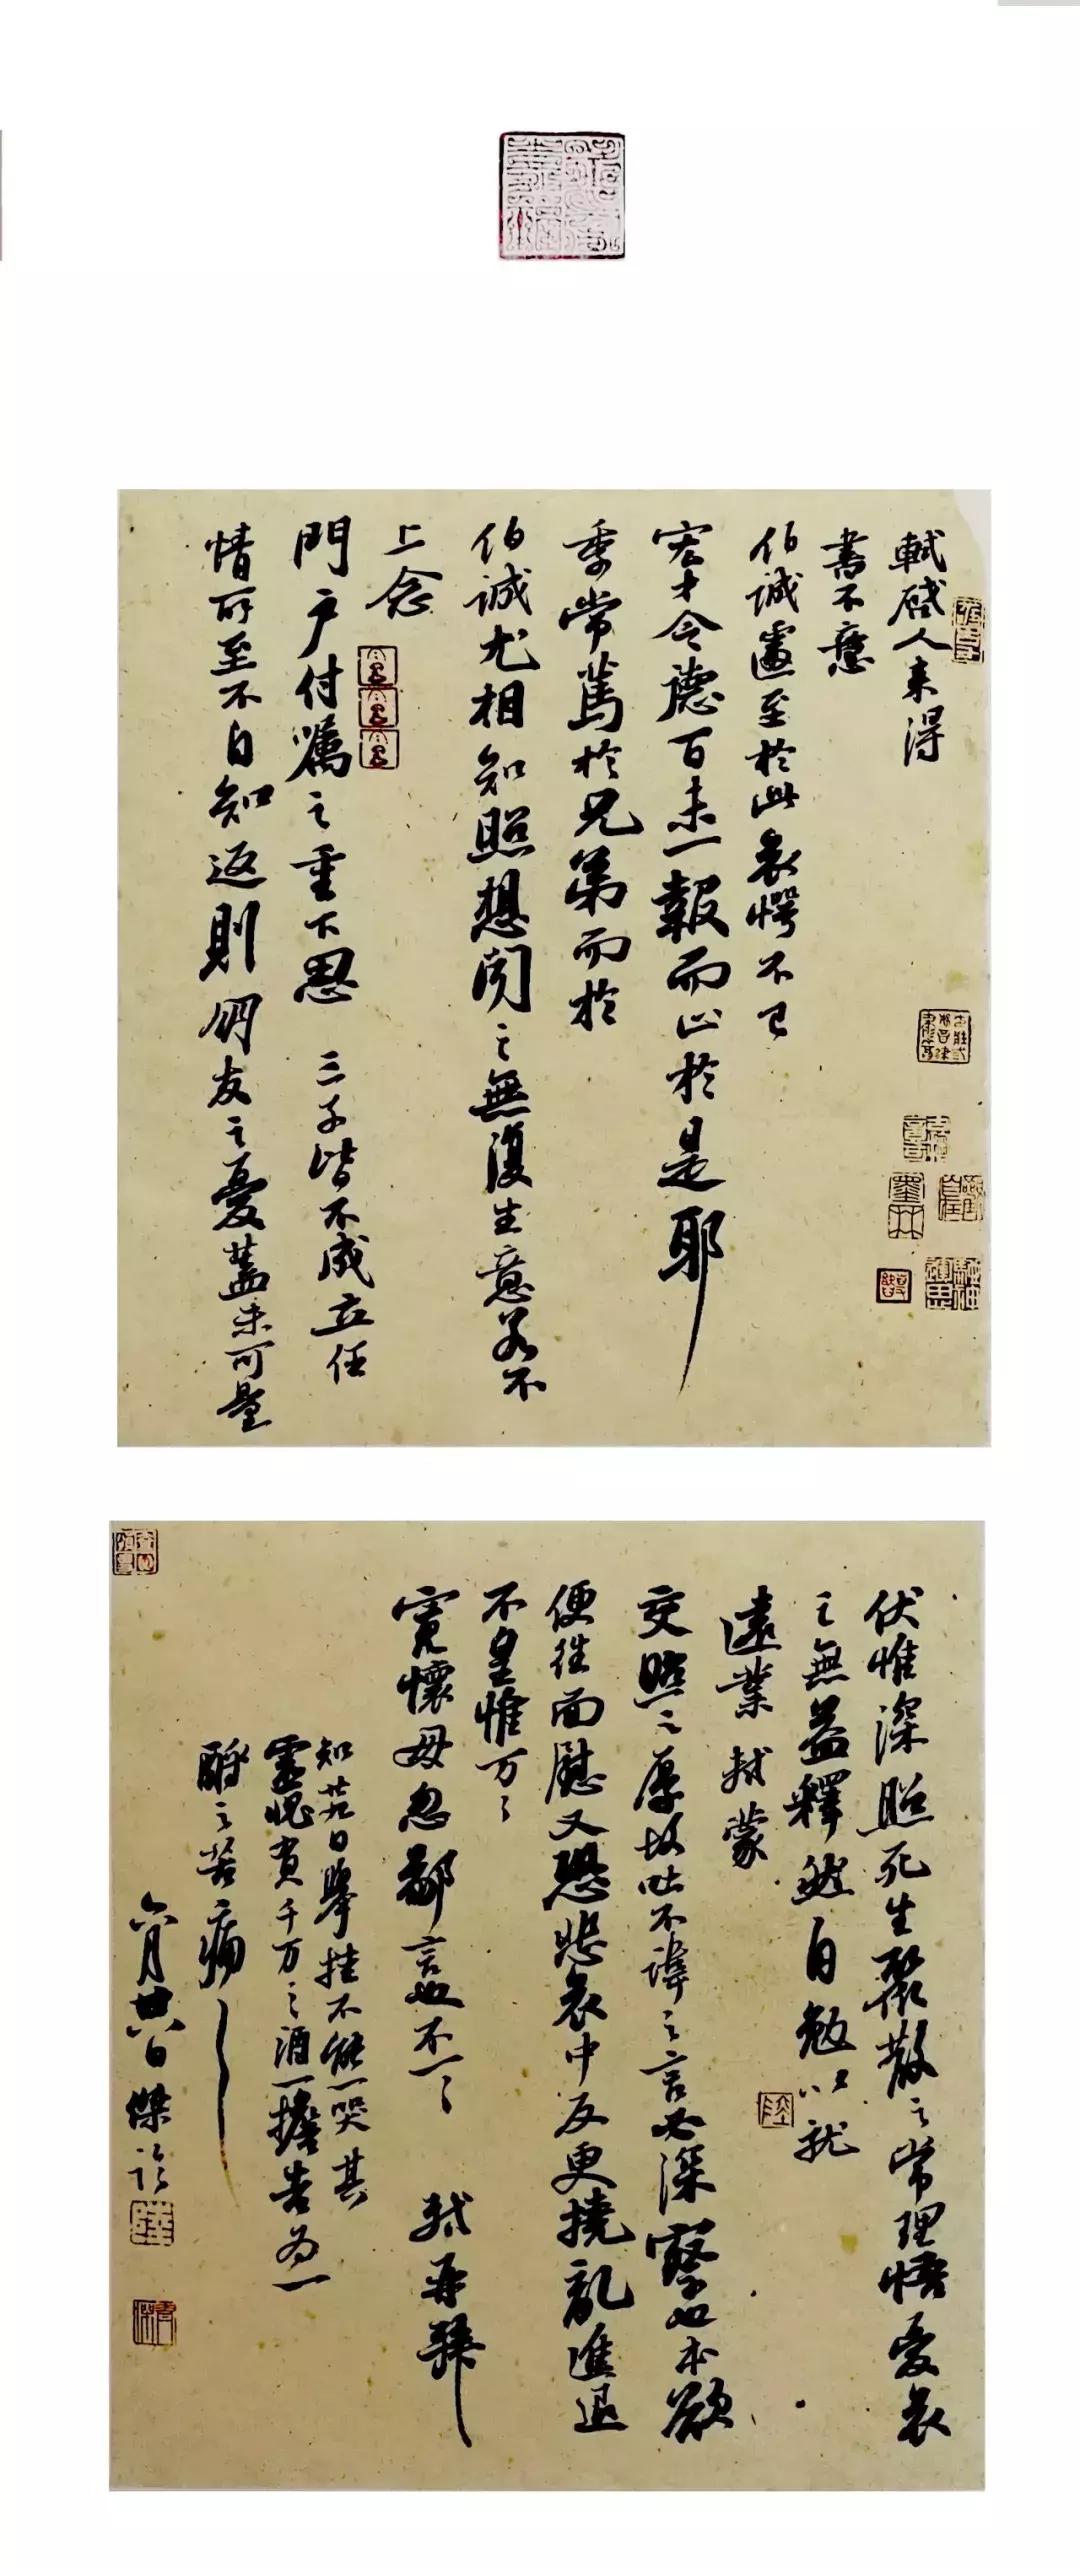 軾啓人來得
書不意
伯誠遽至於此哀愕不已
宏才令德百未一報而止於是耶
季常篤於兄弟而於
伯誠尤相知照想聞之無復生意若不
上念
門户付囑之重下思三子皆不成立任
情所至不自知返則朋友之憂蓋未可量
伏惟深照死生聚散之常理悟憂哀
之無益釋然自勉以就
遠業軾蒙
交照之厚故吐不諱之言必深察也本欲
便往面慰又恐悲哀中反更撓亂進退
不皇惟万〻
寬懷毋忽鄙言也不一〻軾再拜
知廿九日舉掛不能一哭其
靈愧負千万〻酒一擔告為一
酹之苦痛〻
六月廿八日傑臨